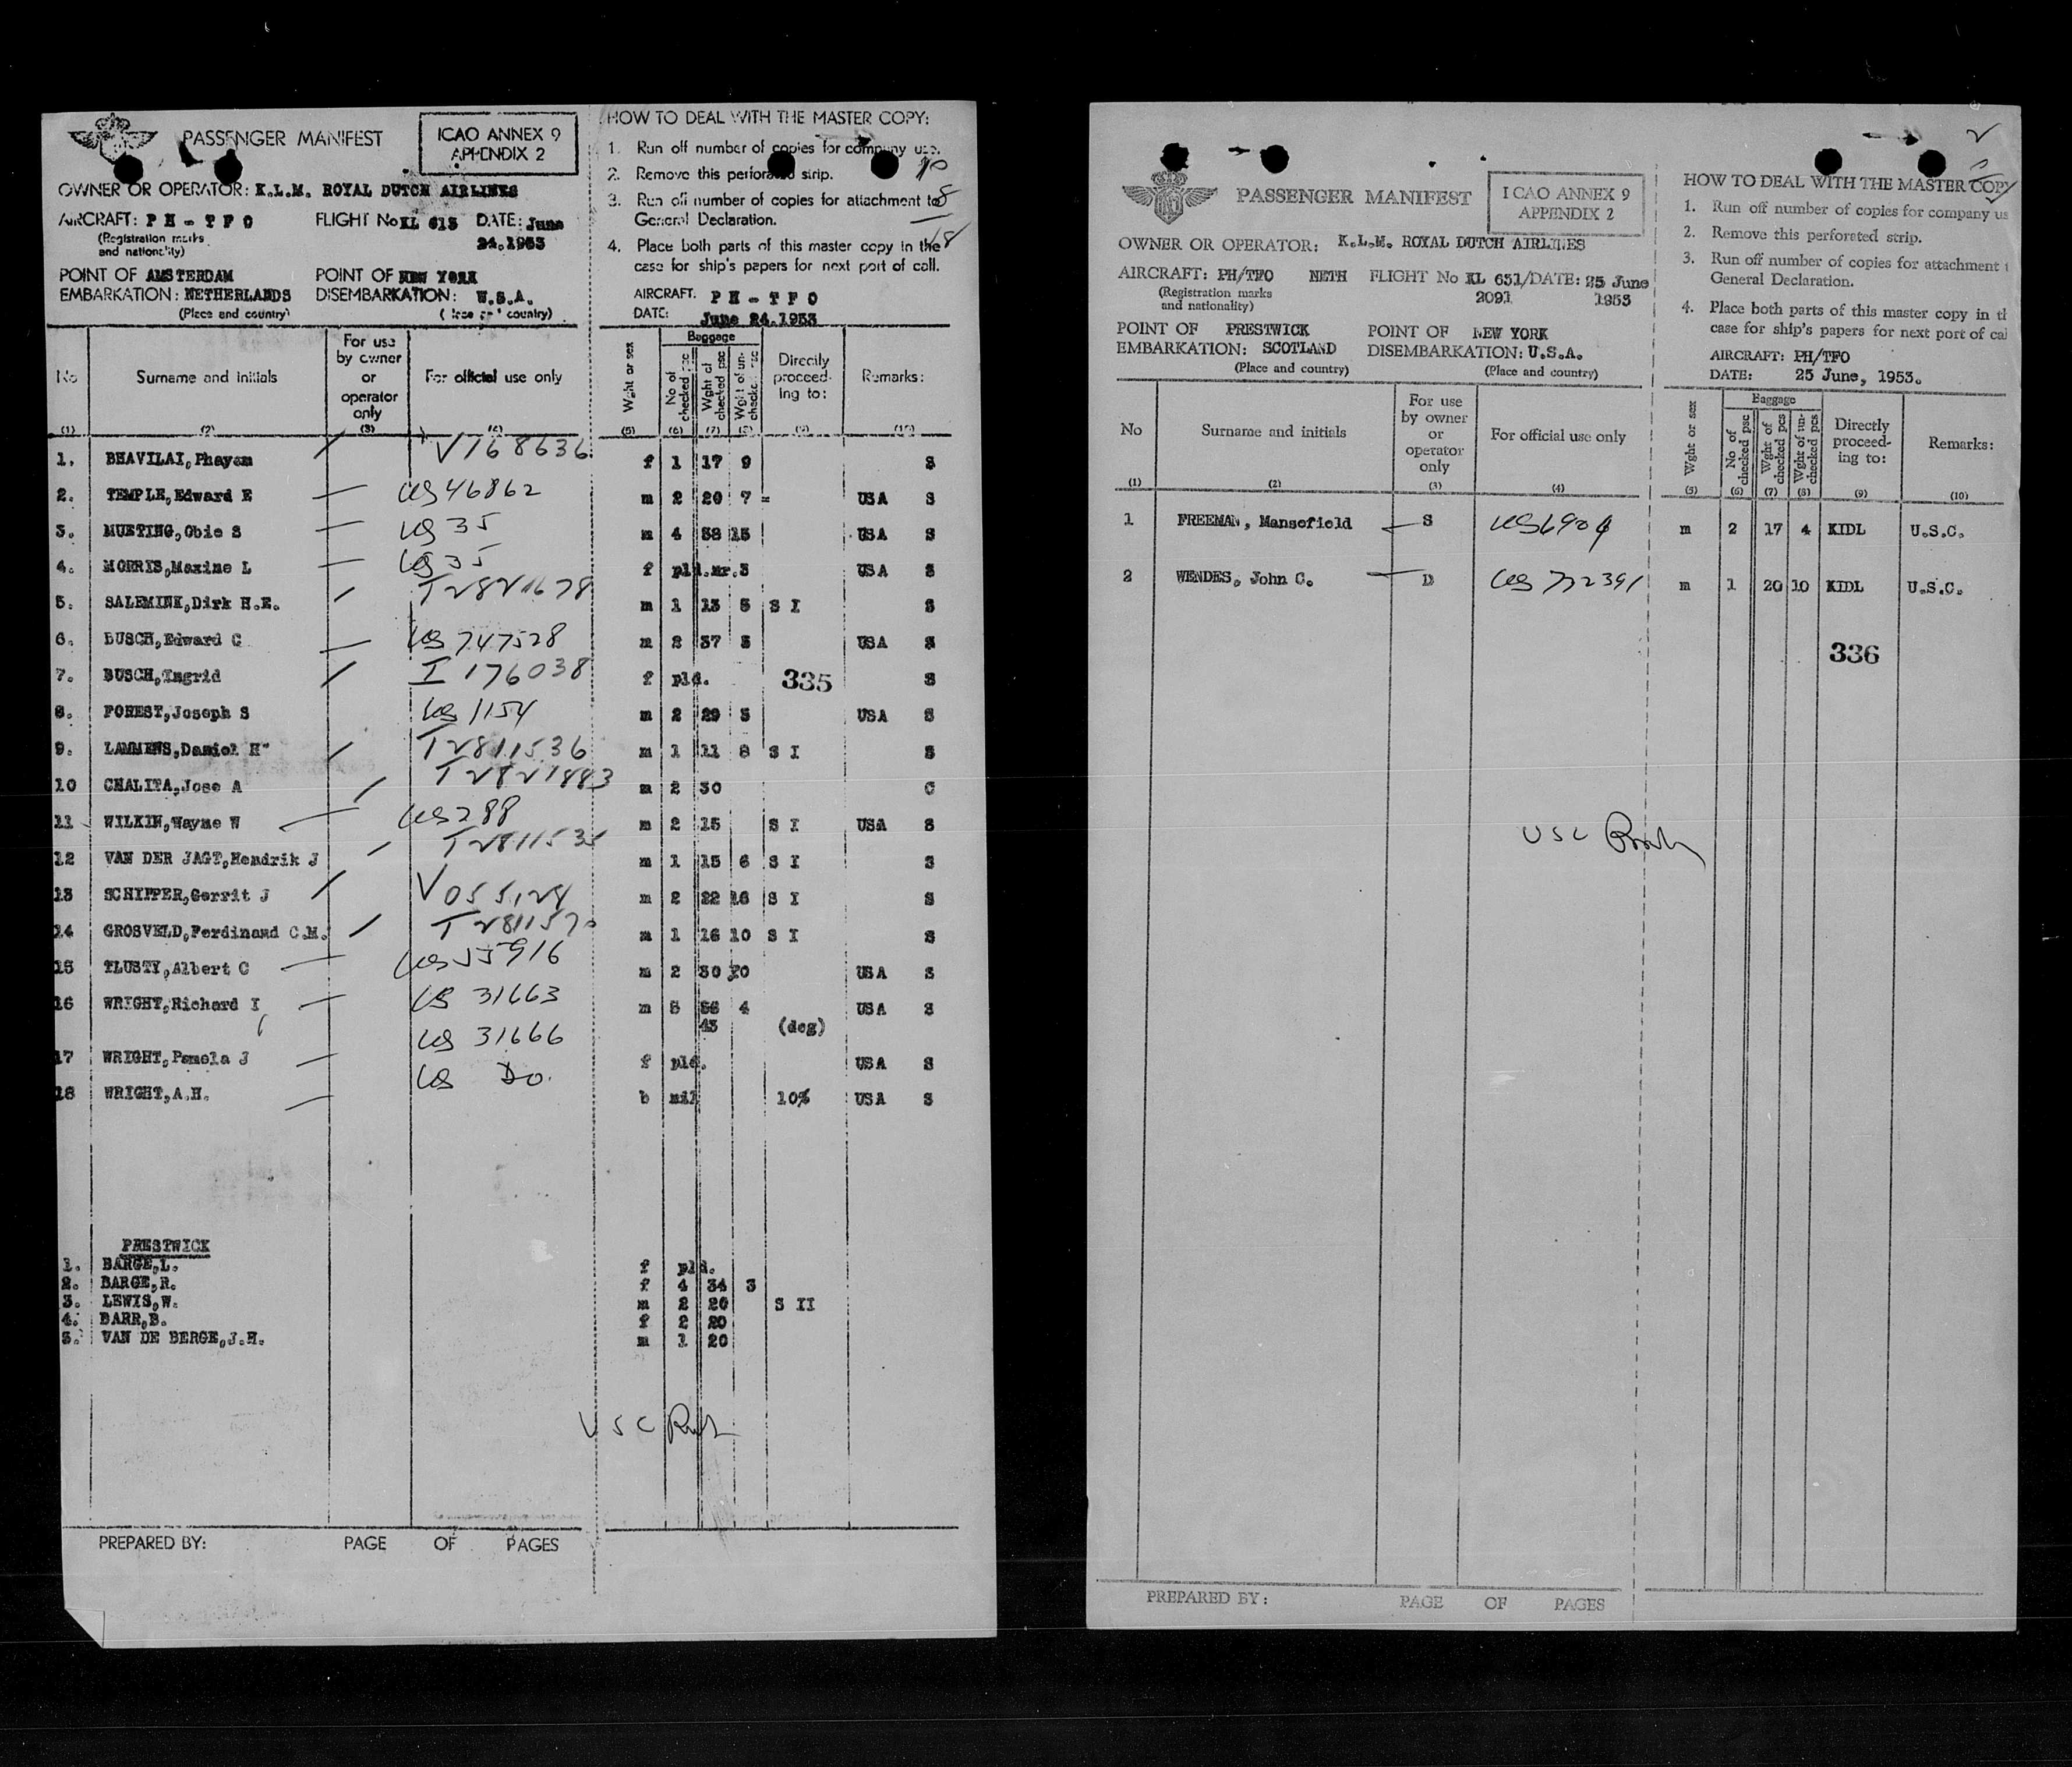 PASSENGER MANIFEST
ICAO ANNEX 9
APPENDIX 2
OWNER OR OPERATOR: K.L.M. ROYAL DUTCH AIRLINES
AIRCRAFT: PH - TFO FLIGHT No KL 613 DATE: June
(Registration marks and nationality) 24.1953
POINT OF EMBARKATION: AMSTERDAM NETHERLANDS
(Place and country)
POINT OF DISEMBARKATION: NEW YORK U.S.A.
HOW TO DEAL WITH THE MASTER COPY:
1. Run off number of copies for company use.
2. Remove this perforated strip.
3. Run off number of copies for attachment to
General Declaration.
4. Place both parts of this master copy in the
case for ship's papers for next port of call.
10
8
18
AIRCRAFT: PH - TFO
DATE: June 24.1953
No Surname and initials For use by owner or operator only For official use only Wght or sex Baggage No of checked psc Wght of checked psc Wght of un-checked psc Directly proceed-ing to: Remarks:
(1) (2) (3) (4) (5) (6) (7) (8) (9) (10)
1. BHAVILAI,Phayom / V768636 f 1 17 9 S
2. TEMPLE,Edward E — US 46862 m 2 20 7 = USA S
3. MUETING,Obie S — US 35 m 4 38 15 USA S
4. MORRIS,Maxine L — US 35 f pld.nr.3 USA S
5. SALEMINK,Dirk H.E. / m 1 13 5 S I S
6. BUSCH,Edward C — US 747528 m 2 37 3 USA S
7. BUSCH,Ingrid / I 176038 f pld. 335 S
8. FOREST,Joseph S US 1154 m 2 29 3 USA S
9. LAMMENS,Daniel H / T2811536 m 1 11 8 S I S
10 CHALITA,Jose A / T2821883 m 2 30 C
11 WILKIN,Wayne W — US 288 m 2 15 S I USA S
12 VAN DER JAGT,Hendrik J / m 1 15 6 S I S
13 SCHIPPER,Gerrit J / V055128 m 2 22 16 S I S
14 GROSVELD,Ferdinand C.M. / m 1 16 10 S I S
15 TLUSTY,Albert C — US 55916 m 2 30 20 USA S
16 WRIGHT,Richard I — US 31663 m 5 56 4 USA S
43 (deg)
17 WRIGHT,Pamela J — US 31666 f pld. USA S
18 WRIGHT,A.H. — US Do. b nil 10% USA S
PRESTWICK
1. BARGE,L. f pld.
2. BARGE,R. f 4 34 3
3. LEWIS,W. m 2 20 S II
4. BARR,B. f 2 20
5. VAN DE BERGE,J.H. m 1 20
USC
PREPARED BY: PAGE OF PAGES
PASSENGER MANIFEST
ICAO ANNEX 9
APPENDIX 2
OWNER OR OPERATOR: K.L.M. ROYAL DUTCH AIRLINES
AIRCRAFT: PH/TFO NETH FLIGHT No KL 631/ DATE: 25 June
(Registration marks and nationality) 2091 1953
POINT OF EMBARKATION: PRESTWICK SCOTLAND
(Place and country)
POINT OF DISEMBARKATION: NEW YORK U.S.A.
(Place and country)
HOW TO DEAL WITH THE MASTER COPY
1. Run off number of copies for company us
2. Remove this perforated strip.
3. Run off number of copies for attachment t
General Declaration.
4. Place both parts of this master copy in th
case for ship's papers for next port of cal
AIRCRAFT: PH/TFO
DATE: 25 June, 1953.
No Surname and initials For use by owner or operator only For official use only Wght or sex Baggage No of checked psc Wght of checked pcs Wght of un-checked pcs Directly proceed-ing to: Remarks:
(1) (2) (3) (4) (5) (6) (7) (8) (9) (10)
1 FREEMAN, Mansefield — S US6904 m 2 17 4 KIDL U.S.C.
2 WENDES, John C. — D US 772391 m 1 20 10 KIDL U.S.C.
336
USC
PREPARED BY: PAGE OF PAGES